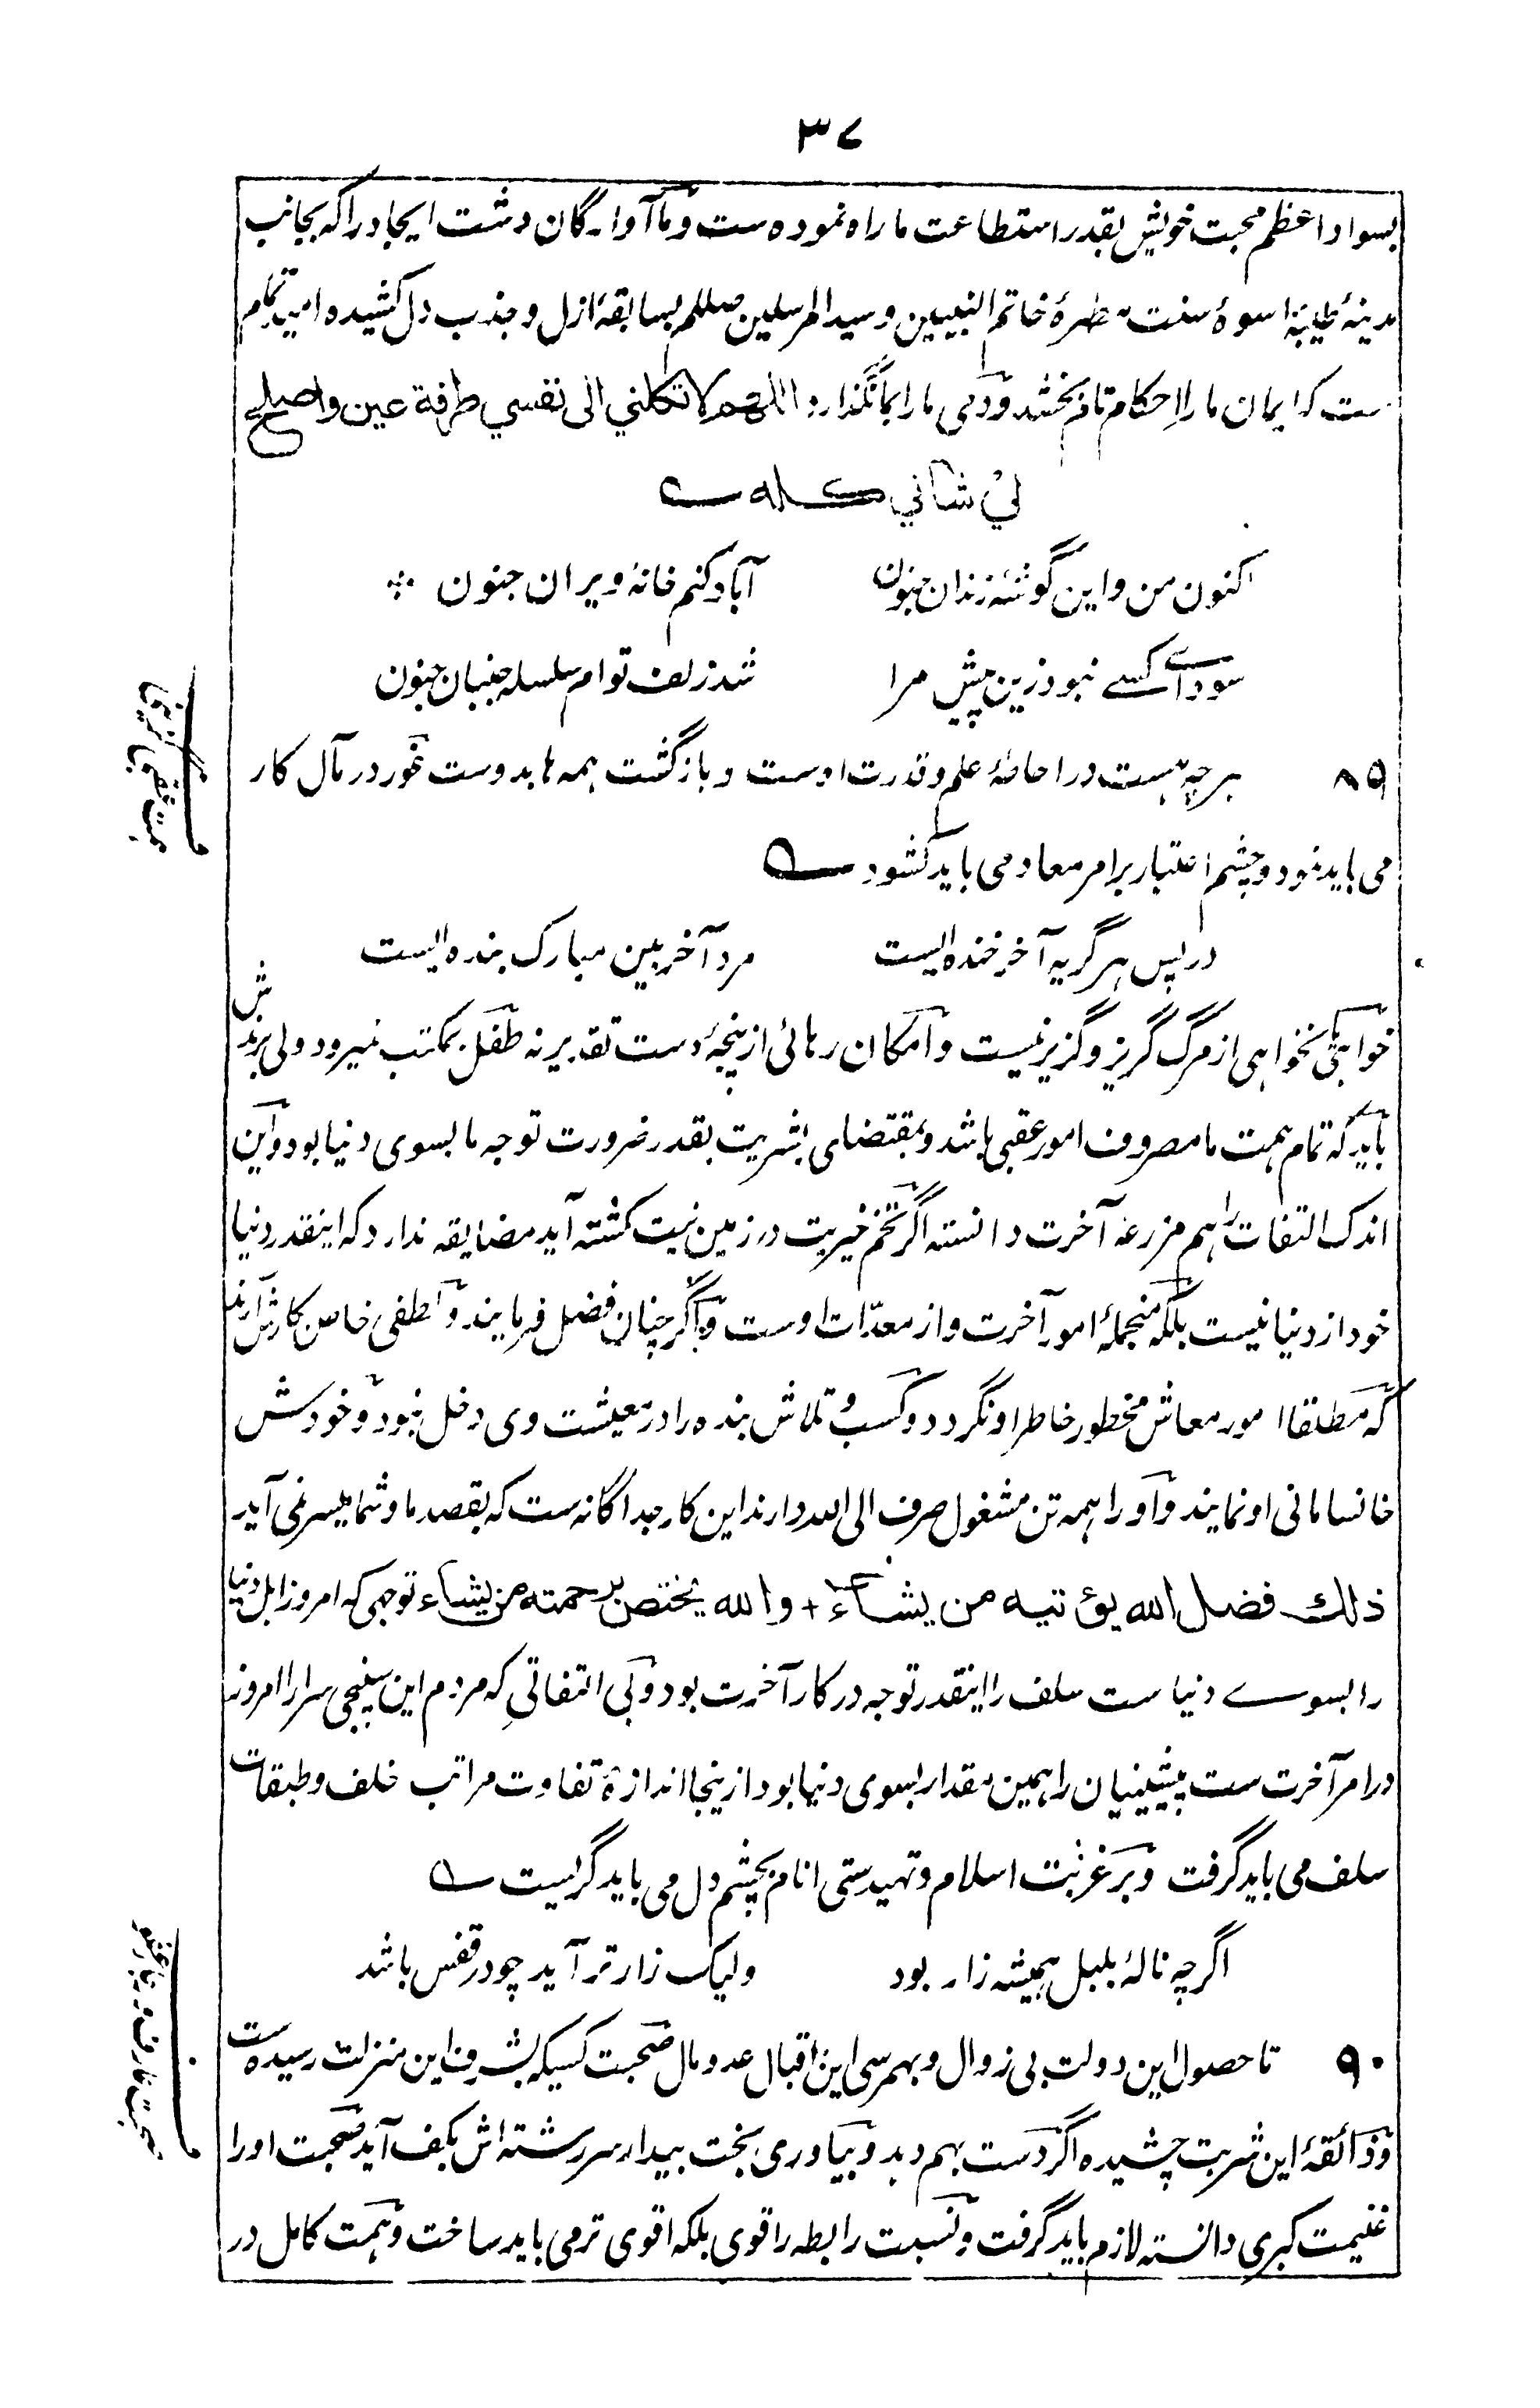 ۳۷
بسواد اعظم محبت خویش بقدر استطاعت ما راه نموده ست و ما آوارگان دشت ایجاد را که بجانب
مدینهٔ طیبهٔ اسوهٔ سنت مطهرهٔ خاتم النبیین وسید المرسلین صللم بسابقهٔ ازل و جذب دل کشیده امید تمام
ست که ایمان ما را احکام تام بخشد و دمی ما را بما نگذارد اللهم لا تكلني الى نفسي طرفة عين واصلح
لي شأني كله
اکنون من و این گوشهٔ زندان جنون آباد کنم خانهٔ ویران جنون
سوداے کسے نبود زین پیش مرا شد زلف توام سلسله جنبان جنون
۸۹ هرچه هست در احاطهٔ علم و قدرت اوست و بازگشت همه ها بدوست غور در مآل کار
می باید نمود و چشم اعتبار بر امر معاد می باید کشود
در پس هر گریه آخر خنده ایست مرد آخر بین مبارک بنده ایست
خواهی نخواهی از مرگ گریز و گزیر نیست و امکان رهائی از پنجهٔ دست تقدیر نه طفل بمکتب نمیرود ولی برندش
باید که تمام همت ما مصروف امور عقبی باشد و بمقتضای بشریت بقدر ضرورت توجه ما بسوی دنیا بود و این
اندک التفات را هم مزرعهٔ آخرت دانسته اگر تخم خیریت در زمین نیت کشته آید مضایقه ندارد که اینقدر دنیا
خود از دنیا نیست بلکه منجملهٔ امور آخرت و از معدّات اوست و اگر چنان فضل فرمایند و لطفی خاص کارش آرند
که مطلقا امور معاش مخطور خاطر او نگردد و کسب و تلاش بنده را در معیشت وی دخل نبود و خودش
خانسامانی او نمایند و او را همه تن مشغول صرف الی الله دارند این کار جداگانه ست که بقصد ما و شما میسر نمی آید
ذلك فضل الله يؤتيه من يشاء + والله يختص برحمته من يشاء توجهی که امروز اهل دنیا
را بسوے دنیاست سلف را اینقدر توجه در کار آخرت بود و بی التفاتیِ که مردم این سپنجی سرا را امروز
در امر آخرت ست پیشینیان را همین مقدار بسوی دنیا بود از ینجا اندازهٔ تفاوت مراتب خلف و طبقات
سلف می باید گرفت و بر غربت اسلام و تهیدستی انام بچشم دل می باید گریست
اگرچه نالهٔ بلبل همیشه زار بود ولیک زارتر آید چو در قفس باشد
۹۰ تا حصول این دولت بی زوال و بهمرسی این اقبال عدو مال صحبت کسیکه بشرف این منزلت رسیده ست
و ذائقهٔ این شربت چشیده اگر دست بهم دهد و بیاوری بخت بیدار سررشته اش بکف آید صحبت او را
غنیمت کبری دانسته لازم باید گرفت و نسبت رابطه را قوی بلکه اقوی تر می باید ساخت و همت کامل در